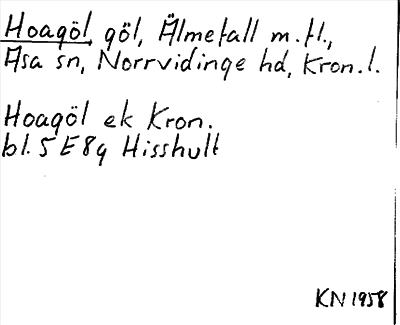 Hoagöl, göl, Älmefall m.fl.,
Asa sn, Norrvidinge hd, Kron.l.
Hoagöl ek Kron.
bl. 5 E 8g Hisshult
KN 1958